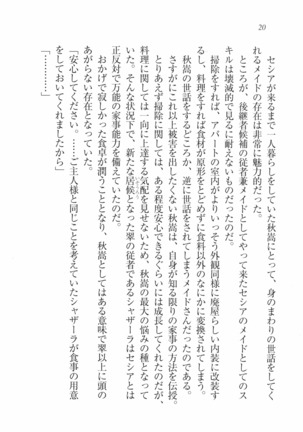 20
セシアが来るまで一人暮らしをしていた秋嵩にとって、身のまわりの世話をしてく
れるメイドの存在は非常に魅力的だった。
ところが、後継者候補の従者兼メイドとしてやって来たセシアのメイドとしてのス
キルは壊滅的で見るに耐えないものだったのだ。
掃除をすれば、アパートの室内がよりいっそう外観同様に廃屋らしい内装に改装す
るし、料理をすれば食材が原形をとどめずに食料以外のなにかに変換されてしまう。
秋嵩の世話をするどころか、逆に世話をされてしまうメイドさんだったのである。
さすがにこれ以上被害を出したくない秋嵩は、自分が知る限りの家事の方法を伝授。
とりあえず掃除に関しては、ある程度安心できるくらいには成長してくれたのだが、
料理に関しては一向に上達する気配を見せないため、秋嵩の最大の悩みの種となって
いた。そんな状況下で、新たな居候となった翠の従者であるシャザーラはセシアとは
正反対で万能の家事能力を備えていたのだ。
おかげで寂しかった食卓が潤うこととなり、秋嵩としてはある意味で翠以上に頭の
あがらない存在となっていた。
「安心してください。……ご主人様と同じことを考えていたシャザーラが食事の用意
をしておいてくれましたから」
「…………」